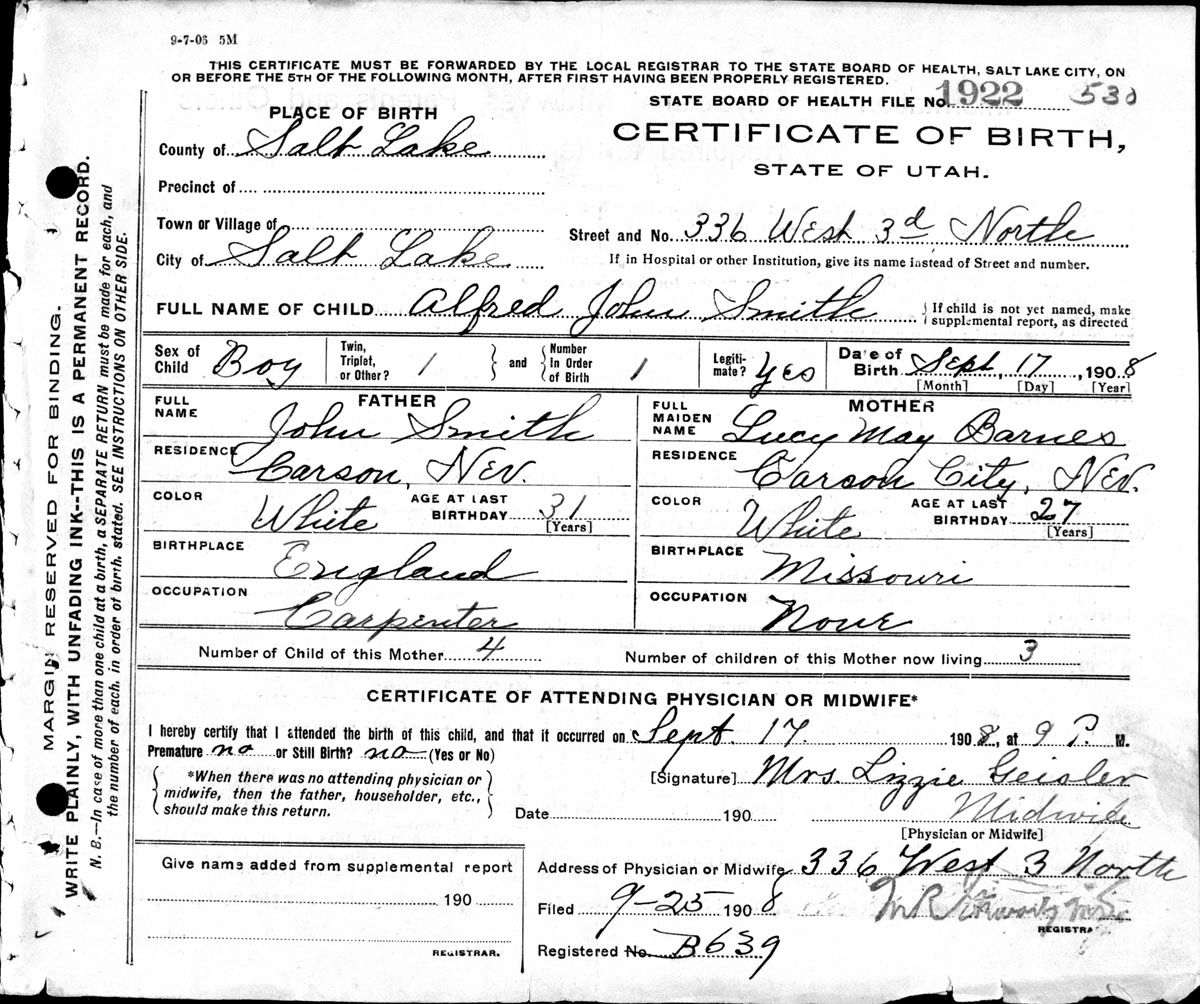 9-7-08 5M
THIS CERTIFICATE MUST BE FORWARDED BY THE LOCAL REGISTRAR TO THE STATE BOARD OF HEALTH, SALT LAKE CITY, ON
OR BEFORE THE 5TH OF THE FOLLOWING MONTH, AFTER FIRST HAVING BEEN PROPERLY REGISTERED.
STATE BOARD OF HEALTH FILE No. 1922 530
PLACE OF BIRTH
CERTIFICATE OF BIRTH,
STATE OF UTAH.
County of Salt Lake
Precinct of
Town or Village of
Street and No. 336 West 3d North
City of Salt Lake
If in Hospital or other Institution, give its name instead of Street and number.
FULL NAME OF CHILD Alfred John Smith { If child is not yet named, make
supplemental report, as directed
Sex of Child Boy Twin, Triplet, or Other? 1 } and { Number In Order of Birth 1 Legiti-mate? Yes Date of Birth Sept, 17, 1908
[Month] [Day] [Year]
FATHER
FULL NAME John Smith
RESIDENCE Carson, Nev.
COLOR White AGE AT LAST BIRTHDAY 31 [Years]
BIRTHPLACE England
OCCUPATION Carpenter
MOTHER
FULL MAIDEN NAME Lucy May Barnes
RESIDENCE Carson City, Nev.
COLOR White AGE AT LAST BIRTHDAY 27 [Years]
BIRTHPLACE Missouri
OCCUPATION None
Number of Child of this Mother 4 Number of children of this Mother now living 3
CERTIFICATE OF ATTENDING PHYSICIAN OR MIDWIFE*
I hereby certify that I attended the birth of this child, and that it occurred on Sept. 17. 1908, at 9 P. M.
Premature no or Still Birth? no (Yes or No)
{ *When there was no attending physician or
midwife, then the father, householder, etc.,
should make this return. }
[Signature] Mrs. Lizzie Geisler
Date 190 Midwife
[Physician or Midwife]
Give name added from supplemental report
190
REGISTRAR.
Address of Physician or Midwife 336 West 3 North
Filed 9-25 1908
REGISTRAR
Registered No. B639
MARGIN RESERVED FOR BINDING.
WRITE PLAINLY, WITH UNFADING INK--THIS IS A PERMANENT RECORD.
N. B.—In case of more than one child at a birth, a SEPARATE RETURN must be made for each, and
the number of each, in order of birth, stated. SEE INSTRUCTIONS ON OTHER SIDE.